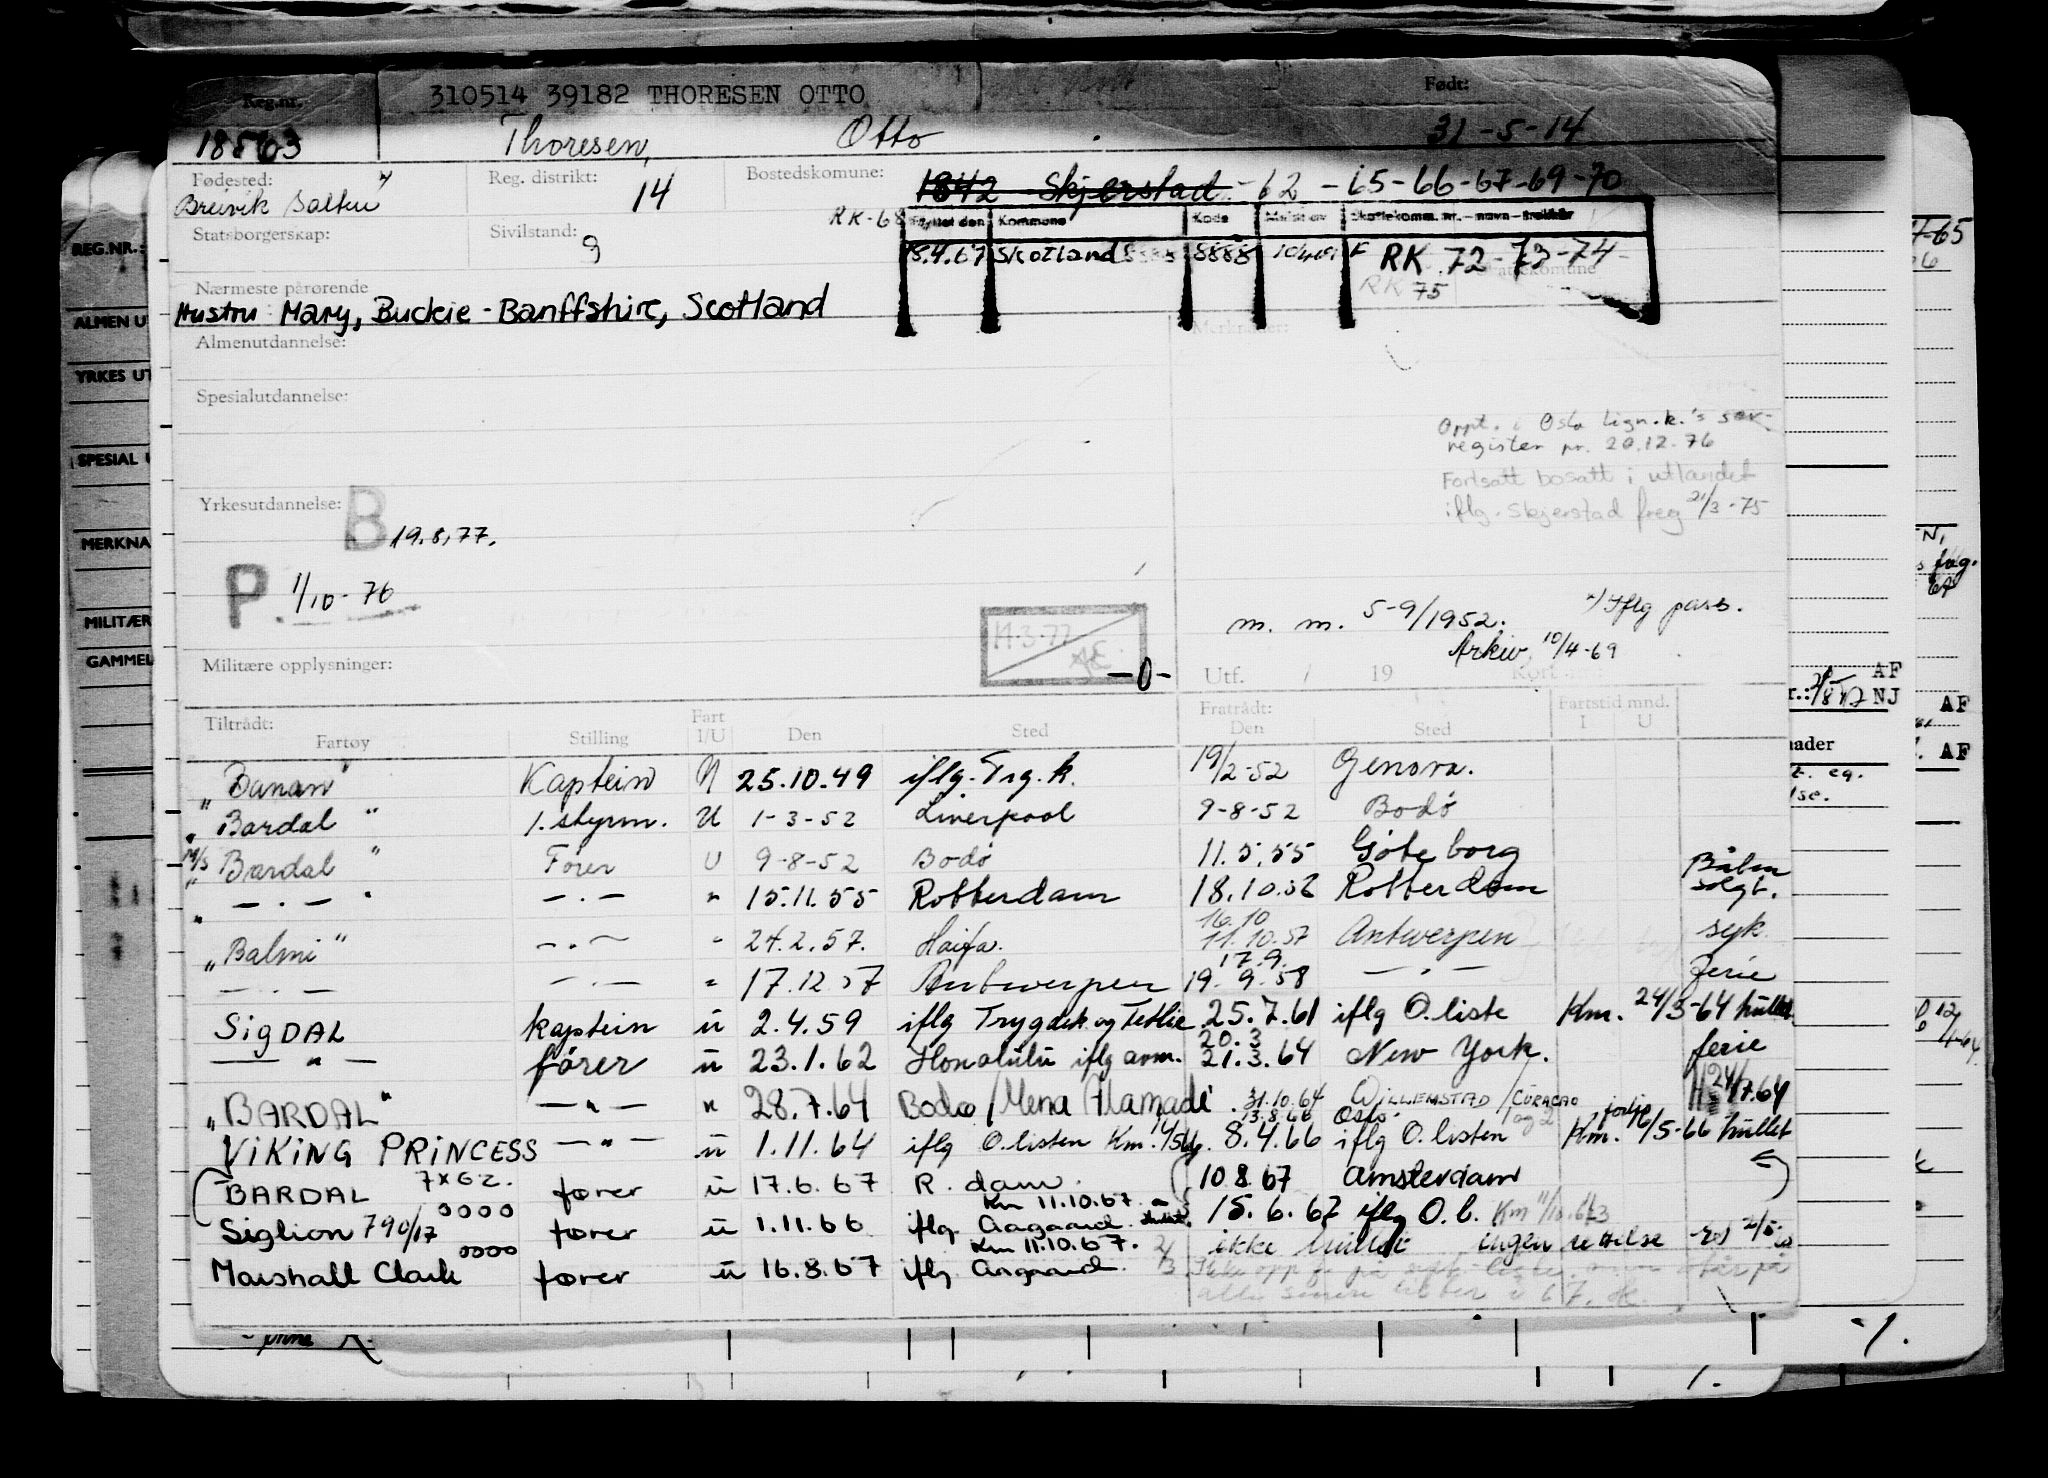 Reg.nr. 310514 39182 THORESEN OTTO Født:
Thoresen, Otto 31-5-14
Fødested: Reg. distrikt: Bostedskomune: 1842 Skjerstad - 62 - 65-66-67-69-70
Breivik Salten 14 RK-68
Flyttet den Kommune Kode Meldt av Skattekomm. nr. - navn - trekkår
Statsborgerskap: Sivilstand: g
18.4.67 Skotland 8888 F RK 72-73-74-
RK 75
Nærmeste pårørende
Hustru Mary, Buckie - Banffshire, Scotland
Almenutdannelse: Merknader:
Spesialutdannelse:
Oppt. i Oslo lign.k.'s sær-
register pr. 20.12.76
Fortsatt bosatt i utlandet
iflg. Skjerstad freg 21/3-75
Yrkesutdannelse: B 19.8.77.
P. 1/10-76
14.3.77
m. m. 5-9/1952. x) Iflg pass.
Arkiv 10/4-69
Militære opplysninger: -0- Utf. / 19 Kort
Tiltrådt: Fart Fratrådt: Fartstid mnd.
Fartøy Stilling I/U Den Sted Den Sted I U
"Banan" Kaptein N 25.10.49 iflg. Trg.k. 19/2-52 Genova.
"Bardal" 1. styrm. U 1-3-52 Liverpool 9-8-52 Bodø
M/S "Bardal" Fører U 9-8-52 Bodø 11.5.55 Göteborg
" —.— " —.— " 15.11.55 Rotterdam 18.10.56 Rotterdam Båten solgt.
16.10
"Balmi" —.— " 24.2.57. Haifa. 11.10.57 Antwerpen syk
17.9.
—.— —.— " 17.12.57 Antwerpen 19.9.58 —.— ferie
SIGDAL kaptein u 2.4.59 iflg Trygdek. og Tetlie 25.7.61 iflg O.liste Km. 24/3-64 hullet
20.3
—"— fører u 23.1.62 Honolulu iflg avm. 21.3.64 New York. ferie
"BARDAL" —"— " 28.7.64 Bodø/Mena Alamadi 31.10.64 WILLEMSTAD/CURACAO 24/7.64
13.8.66 Oslo
VIKING PRINCESS —"— u 1.11.64 iflg O.listen Km. 8.4.66 iflg O.listen Km. 6/5-66 hullet
BARDAL 7x62. fører u 17.6.67 R.dam. 10.8.67 Amsterdam
0000 Km 11.10.67.
Siglion 790/17 fører u 1.11.66 iflg. Aagaard 15.6.67 iflg O.l. Km
0000 Km 11.10.67. ikke hullet ingen rettelse
Marshall Clark fører u 16.8.67 iflg. Aagaard.
REG.NR.:
ALMEN UT
YRKES UT
SPESIAL U
MERKNA
MILITÆR
GAMMEL
AF
NJ AF
AF
-1.
1.